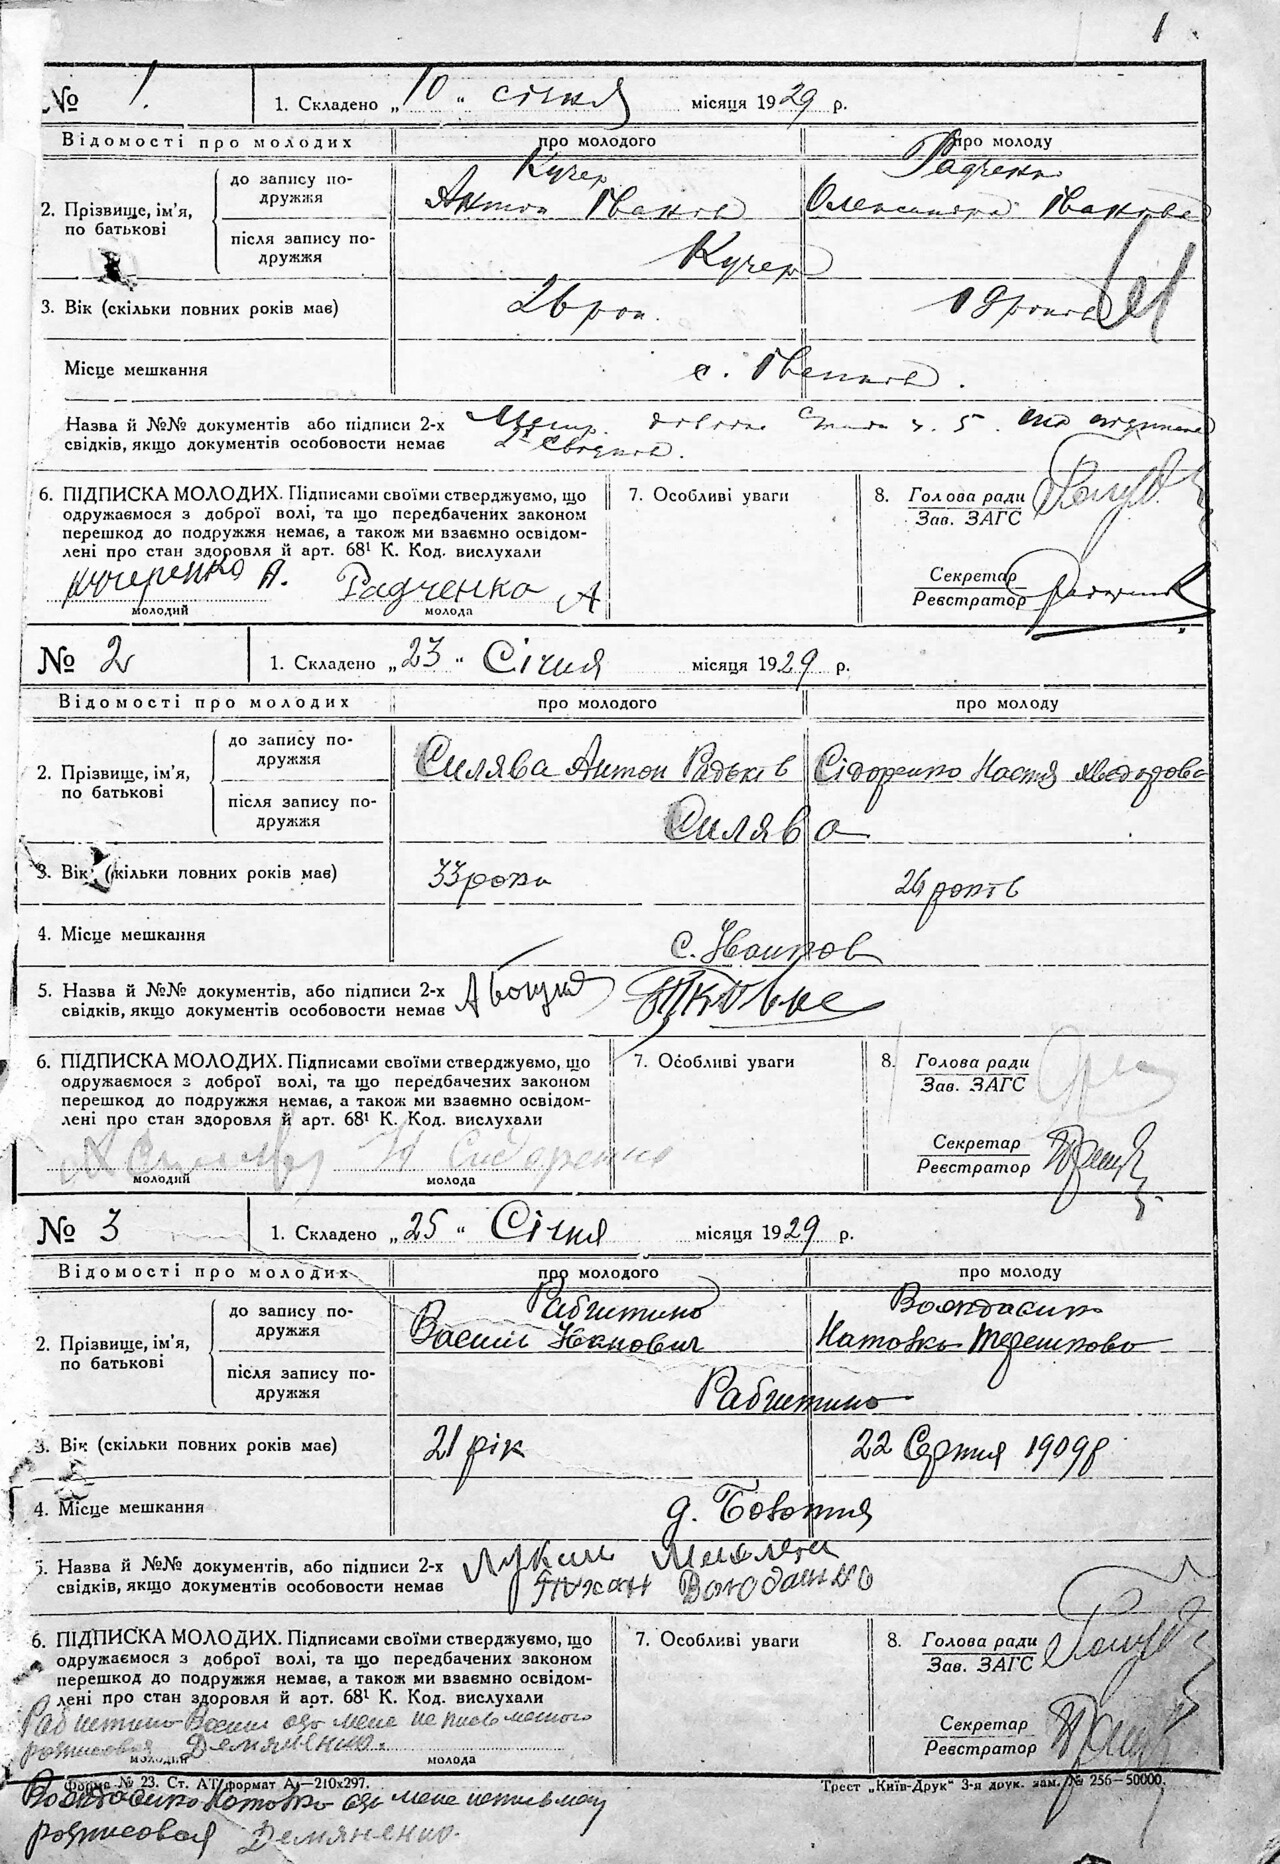 1
№ 1. 1. Складено „10“ січня місяця 1929 р.
Відомості про молодих про молодого про молоду
2. Прізвище, ім'я, по батькові
до запису по-
дружжя
Кучер
Антон Іванов
Радченко
Олександра Іванова
після запису по-
дружжя
Кучер
3. Вік (скільки повних років має) 26 рок. 18 років
Місце мешкання с. Іванків.
Назва й №№ документів або підписи 2-х
свідків, якщо документів особовости немає
6. ПІДПИСКА МОЛОДИХ. Підписами своїми стверджуємо, що
одружаємося з доброї волі, та що передбачених законом
перешкод до подружжя немає, а також ми взаємно освідом-
лені про стан здоровля й арт. 68¹ К. Код. вислухали
Кучеренко А. Радченко А
молодий молода
7. Особливі уваги
8. Голова ради
Зав. ЗАГС
Секретар
Реєстратор
№ 2 1. Складено „23“ Січня місяця 1929 р.
Відомості про молодих про молодого про молоду
2. Прізвище, ім'я,
по батькові
до запису по-
дружжя
Силява Антон Радьків Сідоренко Настя Федорова
після запису по-
дружжя
Силява
3. Вік (скільки повних років має) 33 роки років
4. Місце мешкання с. Іванків
5. Назва й №№ документів, або підписи 2-х
свідків, якщо документів особовости немає
6. ПІДПИСКА МОЛОДИХ. Підписами своїми стверджуємо, що
одружаємося з доброї волі, та що передбачених законом
перешкод до подружжя немає, а також ми взаємно освідом-
лені про стан здоровля й арт. 68¹ К. Код. вислухали
А Силява Н Сидоренко
молодий молода
7. Особливі уваги
8. Голова ради
Зав. ЗАГС
Секретар
Реєстратор
№ 3 1. Складено „25“ Січня місяця 1929 р.
Відомості про молодих про молодого про молоду
2. Прізвище, ім'я,
по батькові
до запису по-
дружжя
Василь Іванович
Терешкова
після запису по-
дружжя
3. Вік (скільки повних років має) 21 рік 22 Серпня 1909 р
4. Місце мешкання
5. Назва й №№ документів, або підписи 2-х
свідків, якщо документів особовости немає
6. ПІДПИСКА МОЛОДИХ. Підписами своїми стверджуємо, що
одружаємося з доброї волі, та що передбачених законом
перешкод до подружжя немає, а також ми взаємно освідом-
лені про стан здоровля й арт. 68¹ К. Код. вислухали
розписовся Демяненко.
молодий молода
7. Особливі уваги
8. Голова ради
Зав. ЗАГС
Секретар
Реєстратор
Форма № 23. Ст. АТ формат А₄—210х297. Трест „Київ-Друк“ 3-я друк. зам. № 256—50000.
розписовся Демяненко.